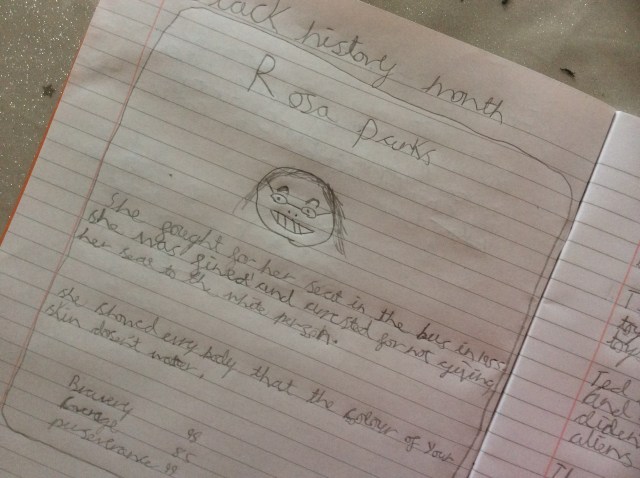 Black history month
Rosa parks
She fought for her seat in the bus in 1955
she was fined and arrested for not giving
her seat to the white person.
she showed evry body that the colour of your
skin doesn't mater.
Bravery 98
Courage 85
perseverance 99
T
toy
toy
Ted
and
diden
aliens
Th